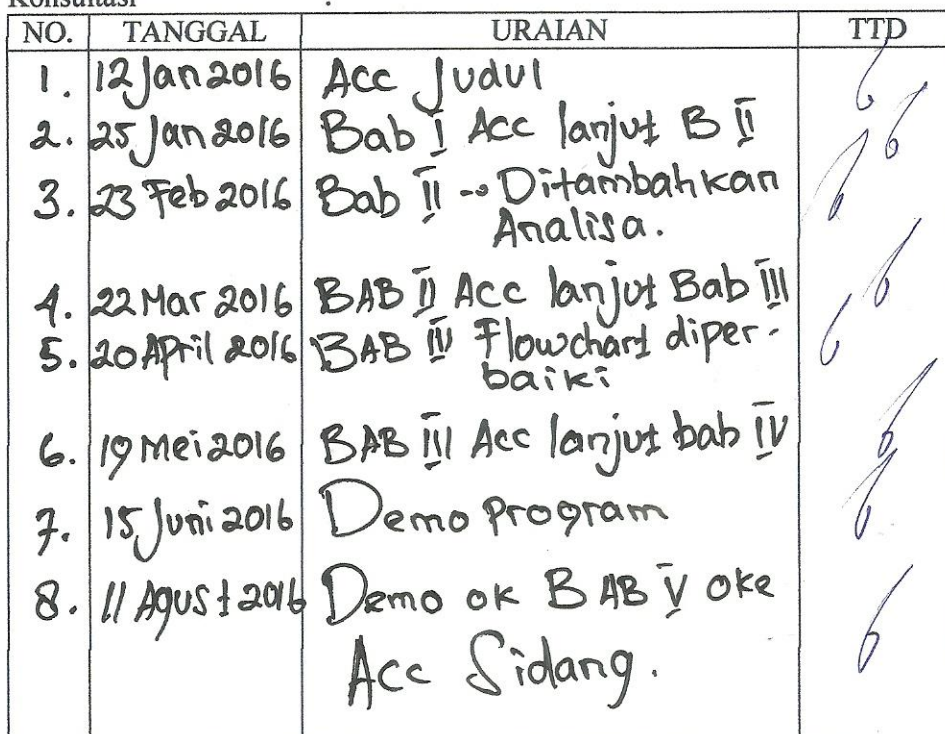 Konsultasi :
NO. TANGGAL URAIAN TTD
1. 12 Jan 2016 Acc Judul
2. 25 Jan 2016 Bab I Acc lanjut B II
3. 23 Feb 2016 Bab II -> Ditambahkan
Analisa.
4. 22 Mar 2016 BAB II Acc lanjut Bab III
5. 20 April 2016 BAB IV Flowchart diper-
baiki
6. 19 Mei 2016 BAB III Acc lanjut bab IV
7. 15 Juni 2016 Demo Program
8. 11 Agust 2016 Demo ok BAB V oke
Acc Sidang.